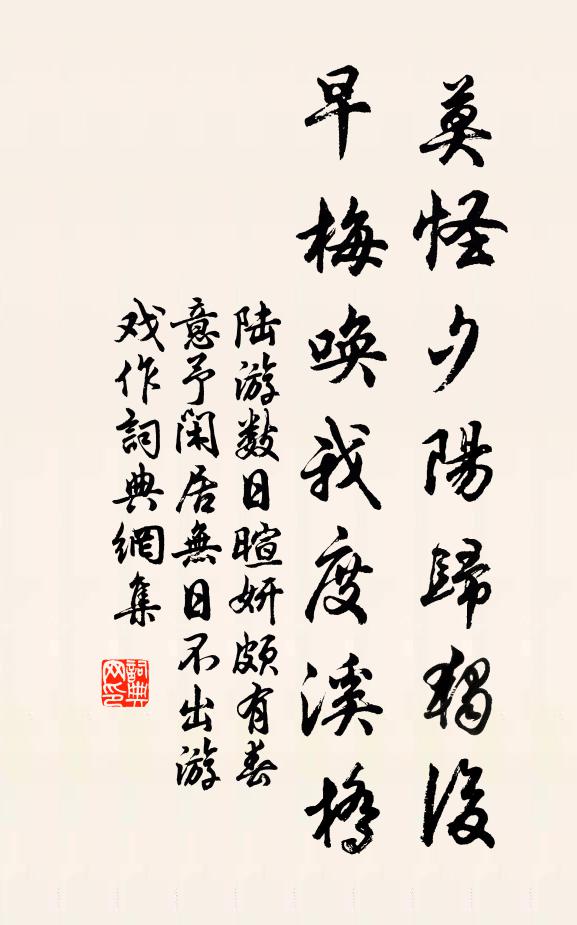 莫怪夕陽歸獨後
早梅喚我度溪橋
陆游数日暄妍颇有春
意予闲居無日不出游
戏作詞典網集
詞典
网印